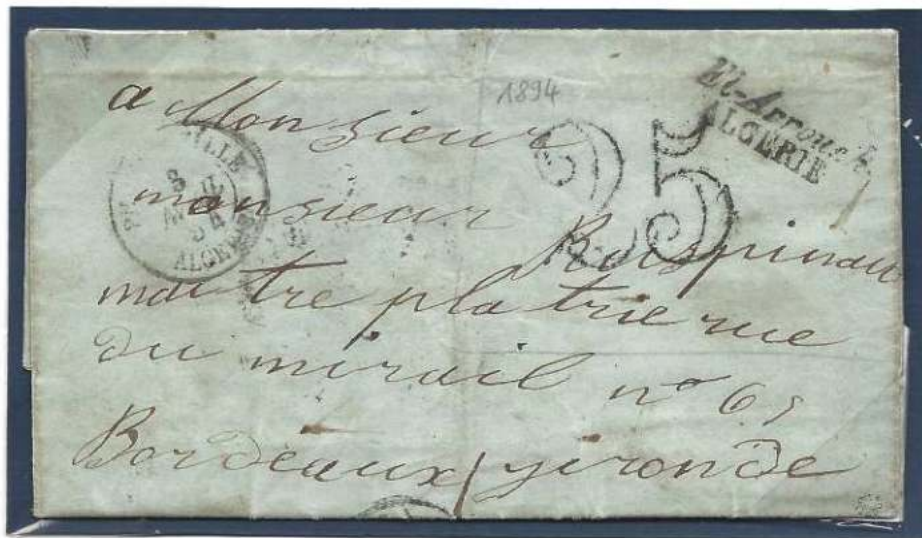 1894
El-Arrouch
ALGERIE
25
VILLE
8
54
a Monsieur
monsieur
maitre platrie rue
du mirail n° 65
Bordeaux / gironde